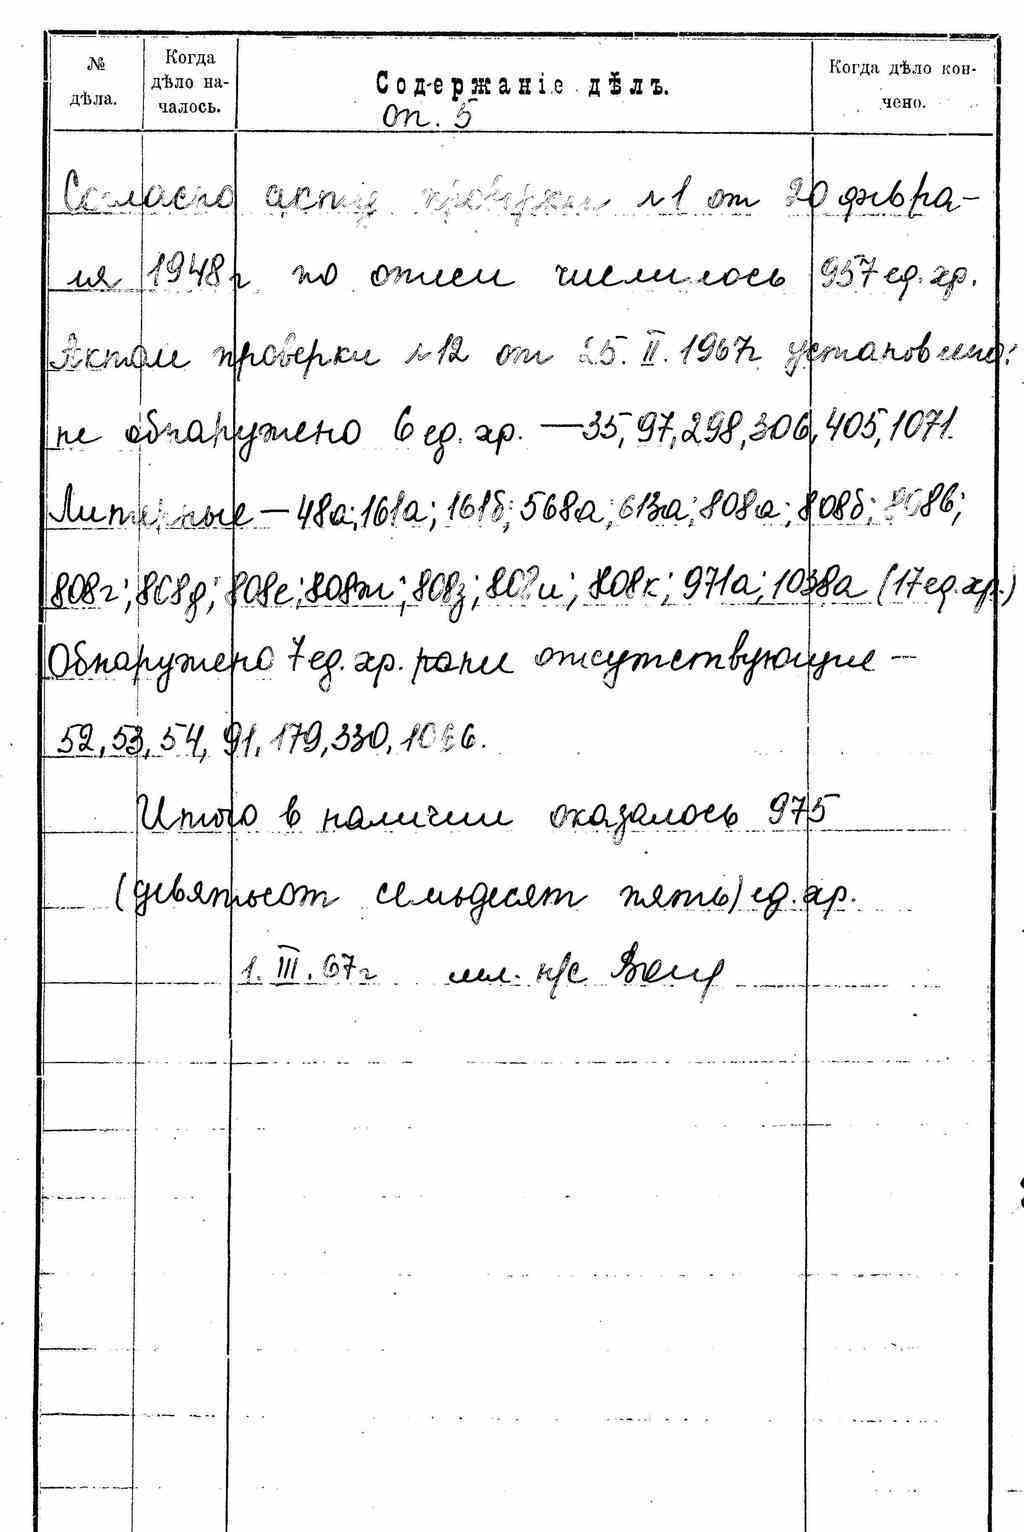 № дѣла.
Когда дѣло началось.
Содержаніе дѣлъ.
Когда дѣло кончено.
оп. 5
Согласно акту проверки №1 от 20 февра-
ля 1948г по описи числилось 957 ед. хр.
Актом проверки №12 от 25.II.1967г установлено:
не обнаружено 6 ед. хр. — 35, 97, 298, 306, 405, 1071.
Литерные — 48а; 161а; 161б; 568а; 613а; 808а; 808б; 808в;
808г; 808д; 808е; 808ж; 808з; 808и; 808к; 971а; 1038а (17 ед. хр.)
Обнаружено 7 ед. хр. ранее отсутствующие —
52, 53, 54, 91, 179, 330,
Итого в наличии оказалось 975
(девятьсот семьдесят пять) ед. хр.
1.III.67г мл. н/с